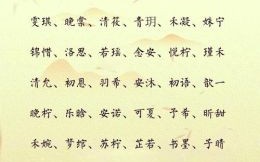 雯琪、晚棠、清筱、青玥、禾凝、姝宁
锦惜、洛思、若瑶、念安、悦柠、瑾禾
清允、初恩、羽希、安沐、初语、歆一
晚柠、乐晗、安诺、可夏、予希、昕甜
禾婉、梦绾、苏柠、芷若、书墨、予晴